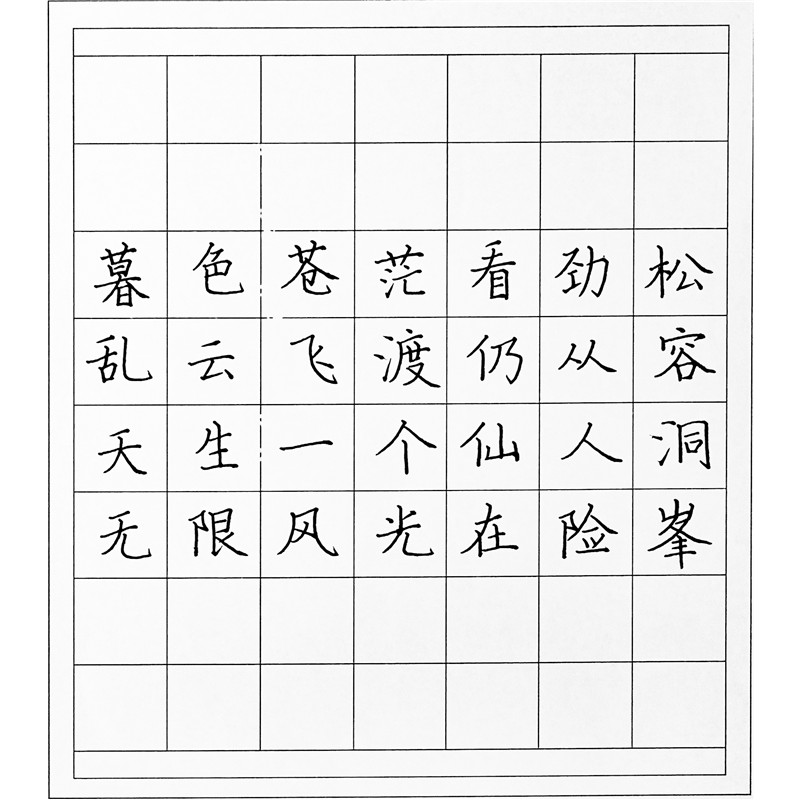 暮色苍茫看劲松
乱云飞渡仍从容
天生一个仙人洞
无限风光在险峯